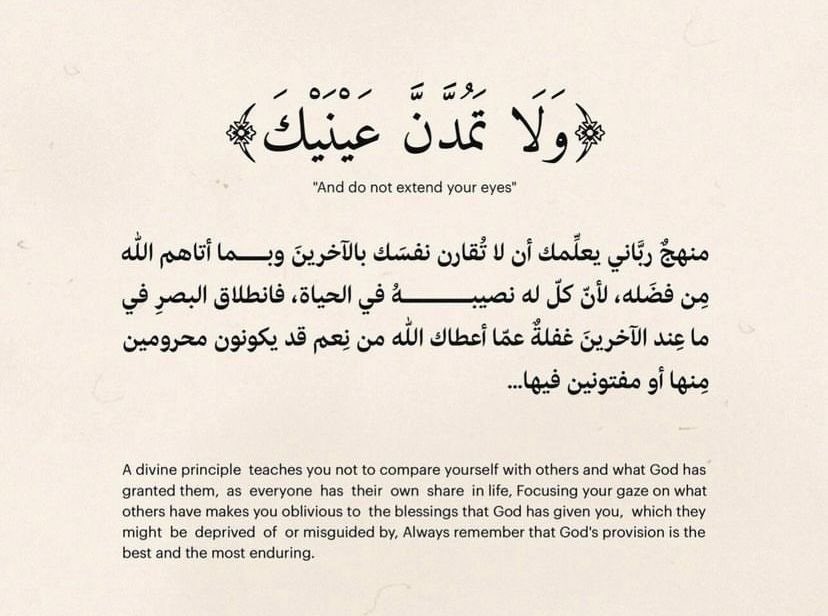 ﴿وَلَا تَمُدَّنَّ عَيْنَيْكَ﴾
"And do not extend your eyes"
منهجٌ ربَّاني يعلِّمك أن لا تُقارن نفسَك بالآخرينَ وبـــما أتاهم الله
مِن فضَله، لأنّ كلّ له نصيبـــــــــهُ في الحياة، فانطلاق البصرِ في
ما عِند الآخرينَ غفلةٌ عمّا أعطاك الله من نِعم قد يكونون محرومين
مِنها أو مفتونين فيها...
A divine principle teaches you not to compare yourself with others and what God has
granted them, as everyone has their own share in life, Focusing your gaze on what
others have makes you oblivious to the blessings that God has given you, which they
might be deprived of or misguided by, Always remember that God's provision is the
best and the most enduring.